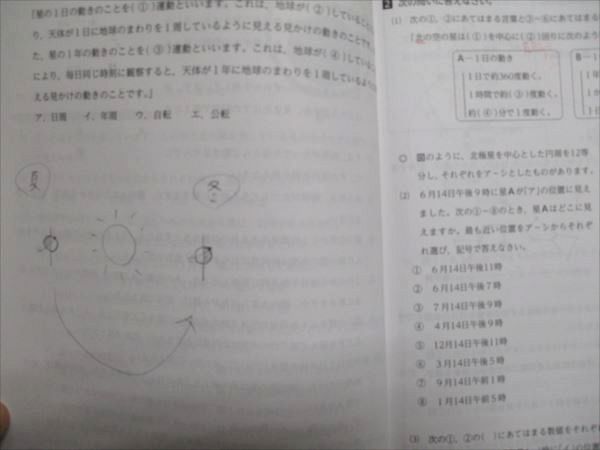 『星の1日の動きのことを(①)運動といいます。これは、地球が(②)していること
り、天体が1日に地球のまわりを1周しているように見える見かけの動きのことです。
た、星の1年の動きのことを(③)運動といいます。これは、地球が(④)している
により、毎日同じ時刻に観察すると、天体が1年に地球のまわりを1周しているように
える見かけの動きのことです。』
ア、日周 イ、年周 ウ、自転 エ、公転
夏
冬
2 次の問いに答えなさい。
(1) 次の①、②にあてはまる言葉と③~⑥にあてはまる
「北の空の星は(①)を中心に(②)回りに次のよう
A－1日の動き
1日で約360度動く。
1時間で約(③)度動く。
約(④)分で1度動く。
B－1
1年
1か
1日
○ 図のように、北極星を中心とした円周を12等
分し、それぞれをア～シとしたものがあります。
(2) 6月14日午後9時に星Aが「ア」の位置に見え
ました。次の①～⑧のとき、星Aはどこに見
えますか。最も近い位置をア～シからそれぞ
れ選び、記号で答えなさい。
① 6月14日午後11時
② 6月14日午後7時
③ 7月14日午後9時
④ 4月14日午後9時
⑤ 12月14日午後11時
⑥ 3月14日午後5時
⑦ 9月14日午前1時
⑧ 1月14日午前5時
(3) 次の①、②の( )にあてはまる数値をそれぞれ